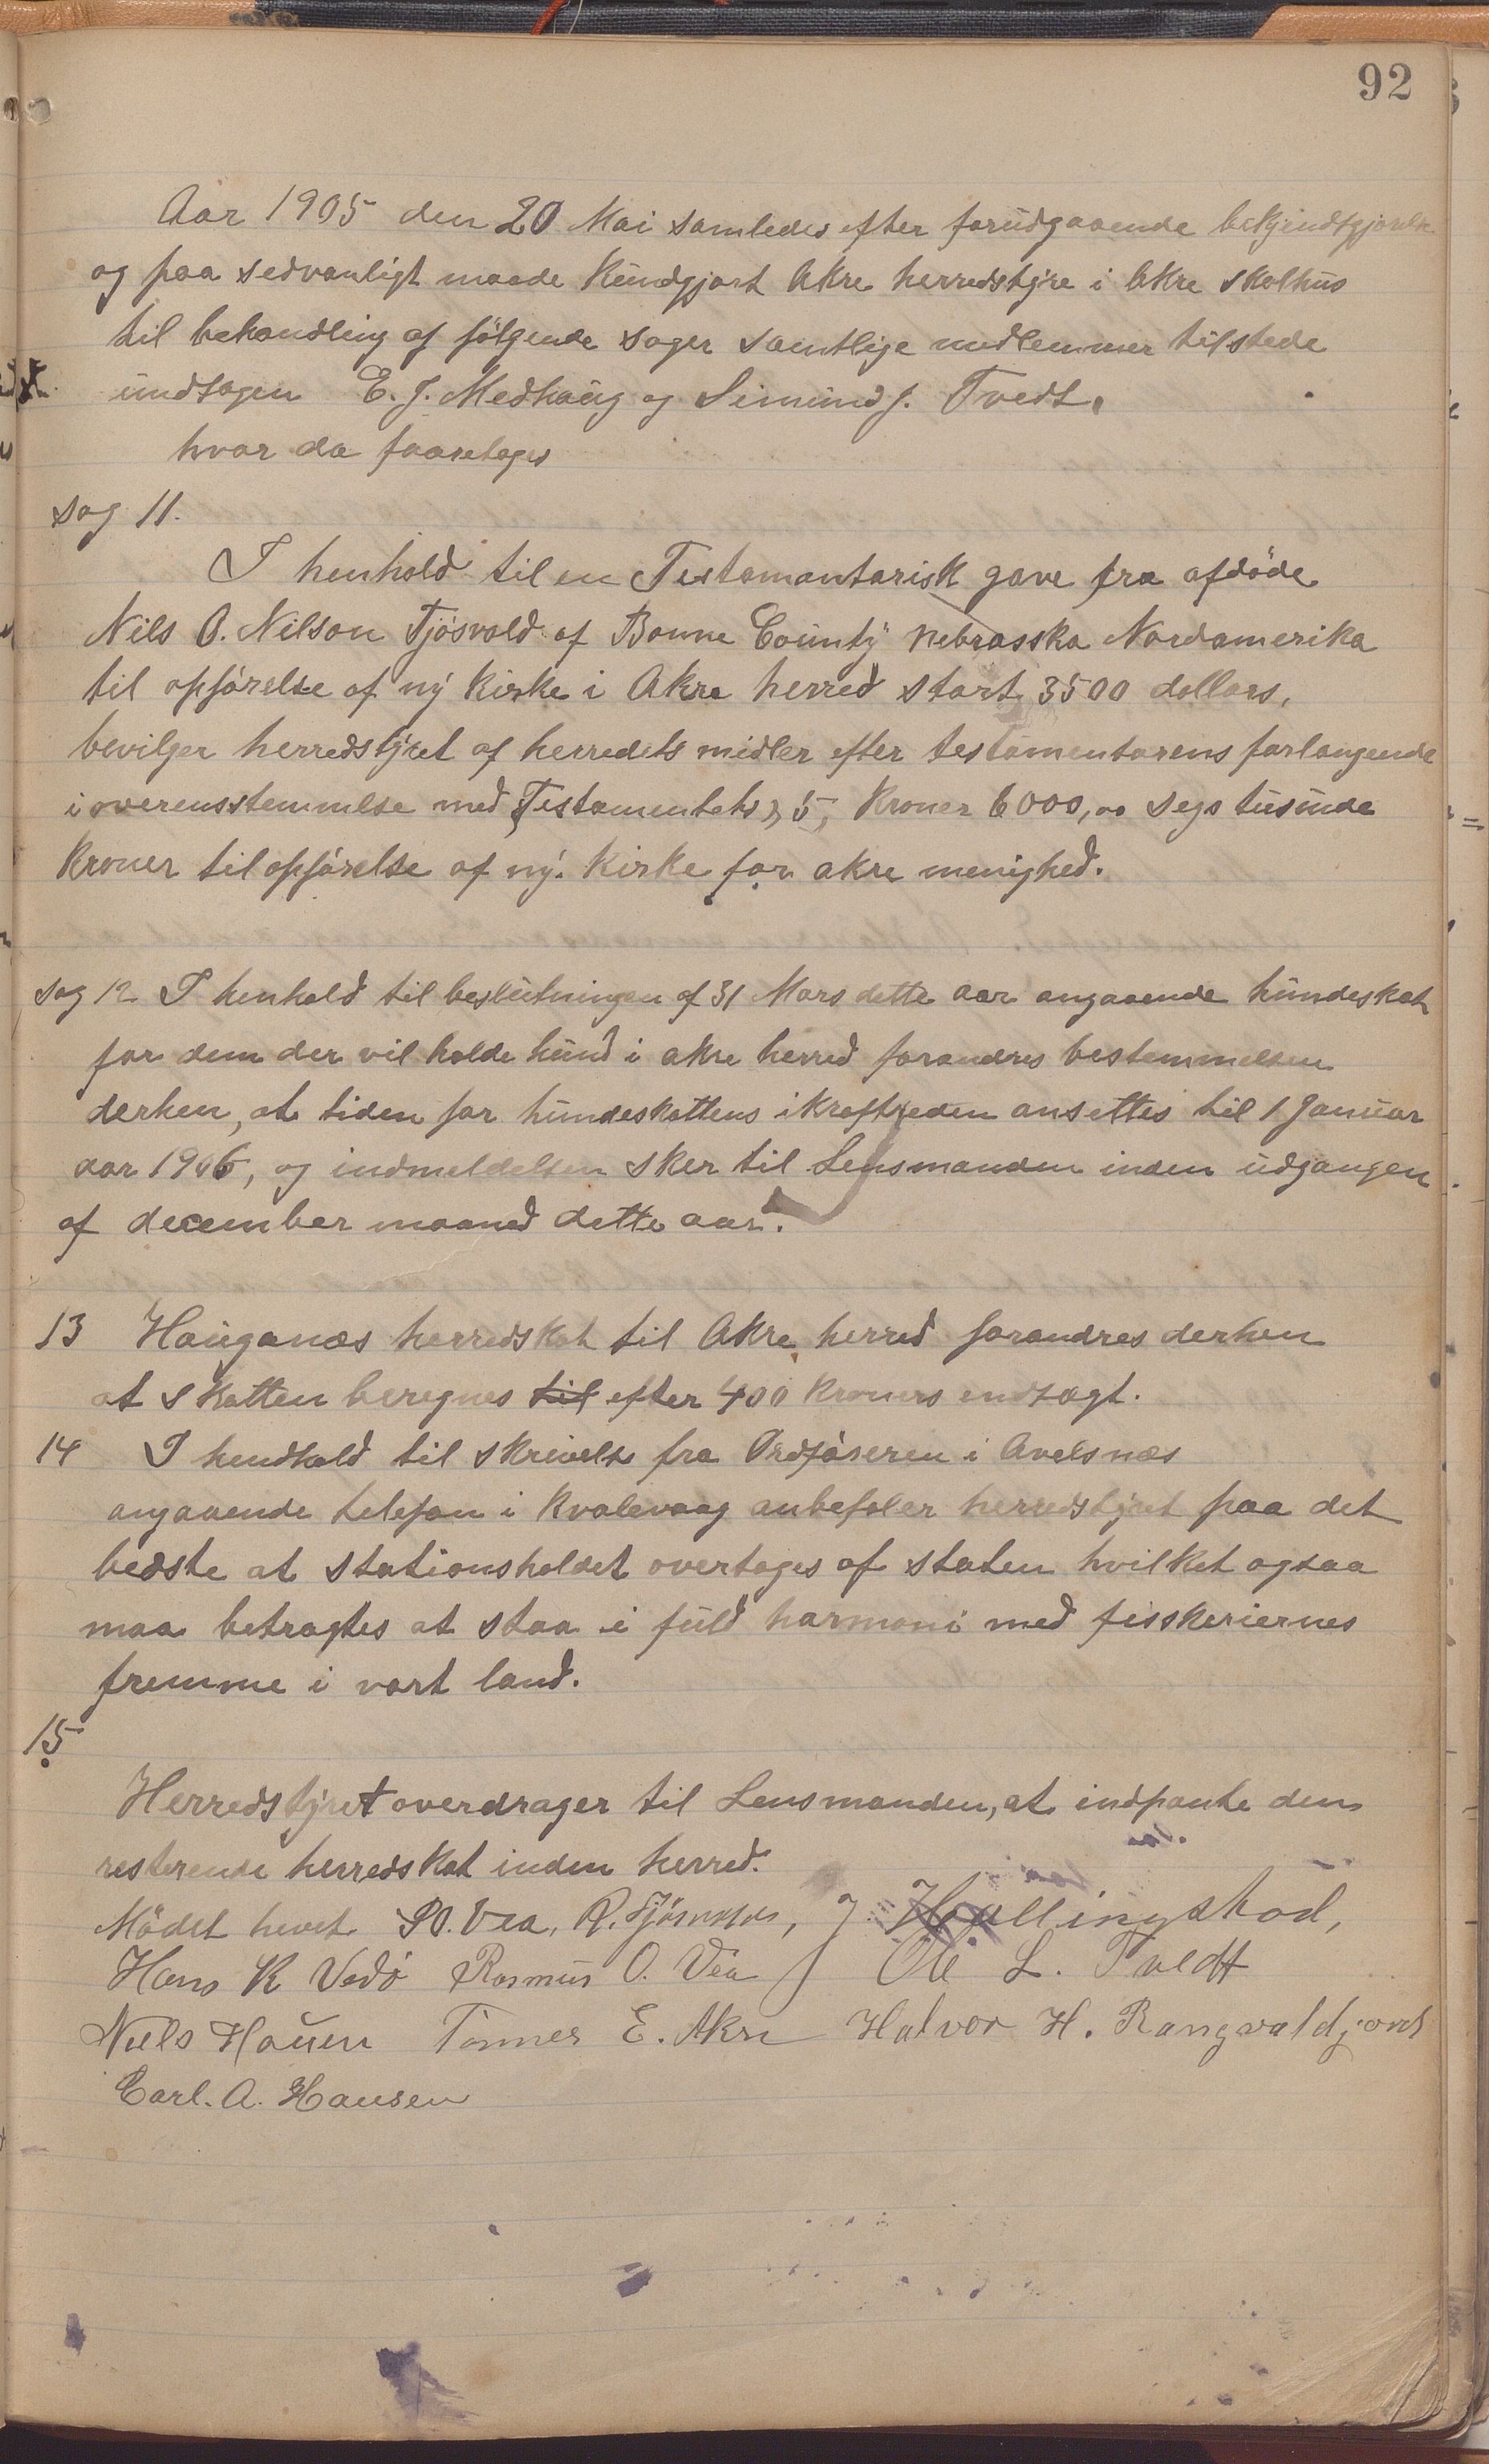 92
Aar 1905 den 20 Mai samledes efter forudgaaende bekjendtgjørelse
og paa sedvanligt maade kundgjort Akre herredstyre i Akre skolhus
til behandling af følgende sager samtlige medlemmer tilstede
undtagen E. J. Medhaug og Simund J. Tvedt.
hvor da foaretages
sag 11.
I henhold til en Testamantarisk gave fra afdöde
Nils O. Nilson Tjösvold af Boune County Nebrasska Nordamerika
til opförelse af ny kirke i Akre herred stort 3500 dollars,
bevilger herredstyret af herredets midler efter testamentarens forlangende
i overensstemmelse med Testamentets § 5, Kroner 6000,00 segs tusinde
Kroner til opförelse af ny kirke for akre menighed.
sag 12 I henhold til beslutningen af 31 Mars dette aar angaaende hundeskat
for dem der vil holde hund i akre herred forandres bestemmelsen
derhen, at tiden for hundeskattens ikrafttræden ansettes til 1 Januar
aar 1906, og indmeldelsen sker til Lensmanden inden udgangen
af december maaned dette aar.
13 Hauganæs herredskat til Akre herred forandres derhen
at skatten beregnes til efter 400 kroners indtægt.
14 I hendhold til skrivelse fra Ordföreren i Avelsnæs
angaaende telefon i Kvalevaag anbefaler herredstyret paa det
bedste at stationsholdet overtages af staten hvilket ogsaa
maa betragtes at staa i fuld harmoni med fisskeriernes
fremme i vort land.
15
Herredstyret overdrager til Lensmanden, at indpante den
resterende herredskat inden herred.
Mödet hevet P.O. Vea, J. Hællingstad,
Hans K Vedö Rasmus O. Vea Ole L. Tvedt
Niels Hauen Tönnes E. Akre Halvor H. Rangvaldjord
Carl. A. Hansen